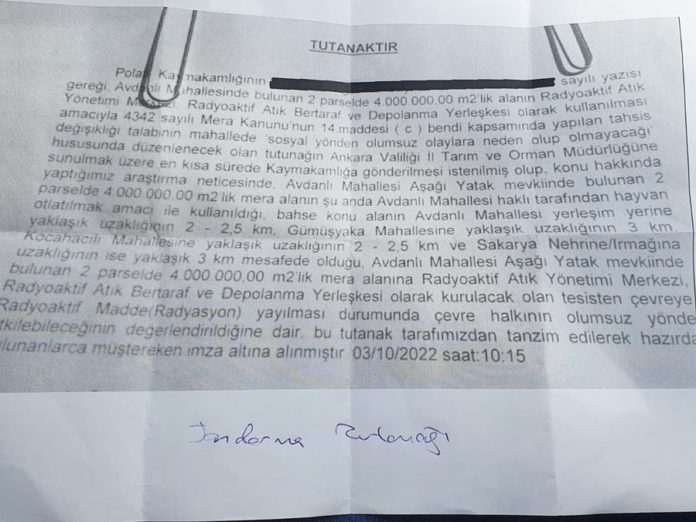 TUTANAKTIR
Kaymakamlığının sayılı yazısı
gereği, Avdanlı Mahallesinde bulunan 2 parselde 4.000.000,00 m2'lik alanın Radyoaktif Atık
Yönetimi Merkezi, Radyoaktif Atık Bertaraf ve Depolanma Yerleşkesi olarak kullanılması
amacıyla 4342 sayılı Mera Kanunu'nun 14 maddesi ( c ) bendi kapsamında yapılan tahsis
değişikliği talabının mahallede 'sosyal yönden olumsuz olaylara neden olup olmayacağı'
hususunda düzenlenecek olan tutunağın Ankara Valiliği İl Tarım ve Orman Müdürlüğüne
sunulmak üzere en kısa sürede Kaymakamlığa gönderilmesi istenilmiş olup, konu hakkında
yaptığımız araştırma neticesinde, Avdanlı Mahallesi Aşağı Yatak mevkiinde bulunan 2
parselde 4.000.000,00 m2'lik mera alanın şu anda Avdanlı Mahallesi haklı tarafından hayvan
otlatılmak amacı ile kullanıldığı, bahse konu alanın Avdanlı Mahallesi yerleşim yerine
yaklaşık uzaklığının 2 - 2,5 km, Gümüşyaka Mahallesine yaklaşık uzaklığının 3 km,
Kocahacılı Mahallesine yaklaşık uzaklığının 2 - 2,5 km ve Sakarya Nehrine/Irmağına
uzaklığının ise yaklaşık 3 km mesafede olduğu, Avdanlı Mahallesi Aşağı Yatak mevkiinde
bulunan 2 parselde 4.000.000,00 m2'lik mera alanına Radyoaktif Atık Yönetimi Merkezi,
Radyoaktif Atık Bertaraf ve Depolanma Yerleşkesi olarak kurulacak olan tesisten çevreye
Radyoaktif Madde(Radyasyon) yayılması durumunda çevre halkının olumsuz yönde
tkilebileceğinin değerlendirildiğine dair, bu tutanak tarafımızdan tanzim edilerek hazırda
ulunanlarca müştereken imza altına alınmıştır 03/10/2022 saat:10:15